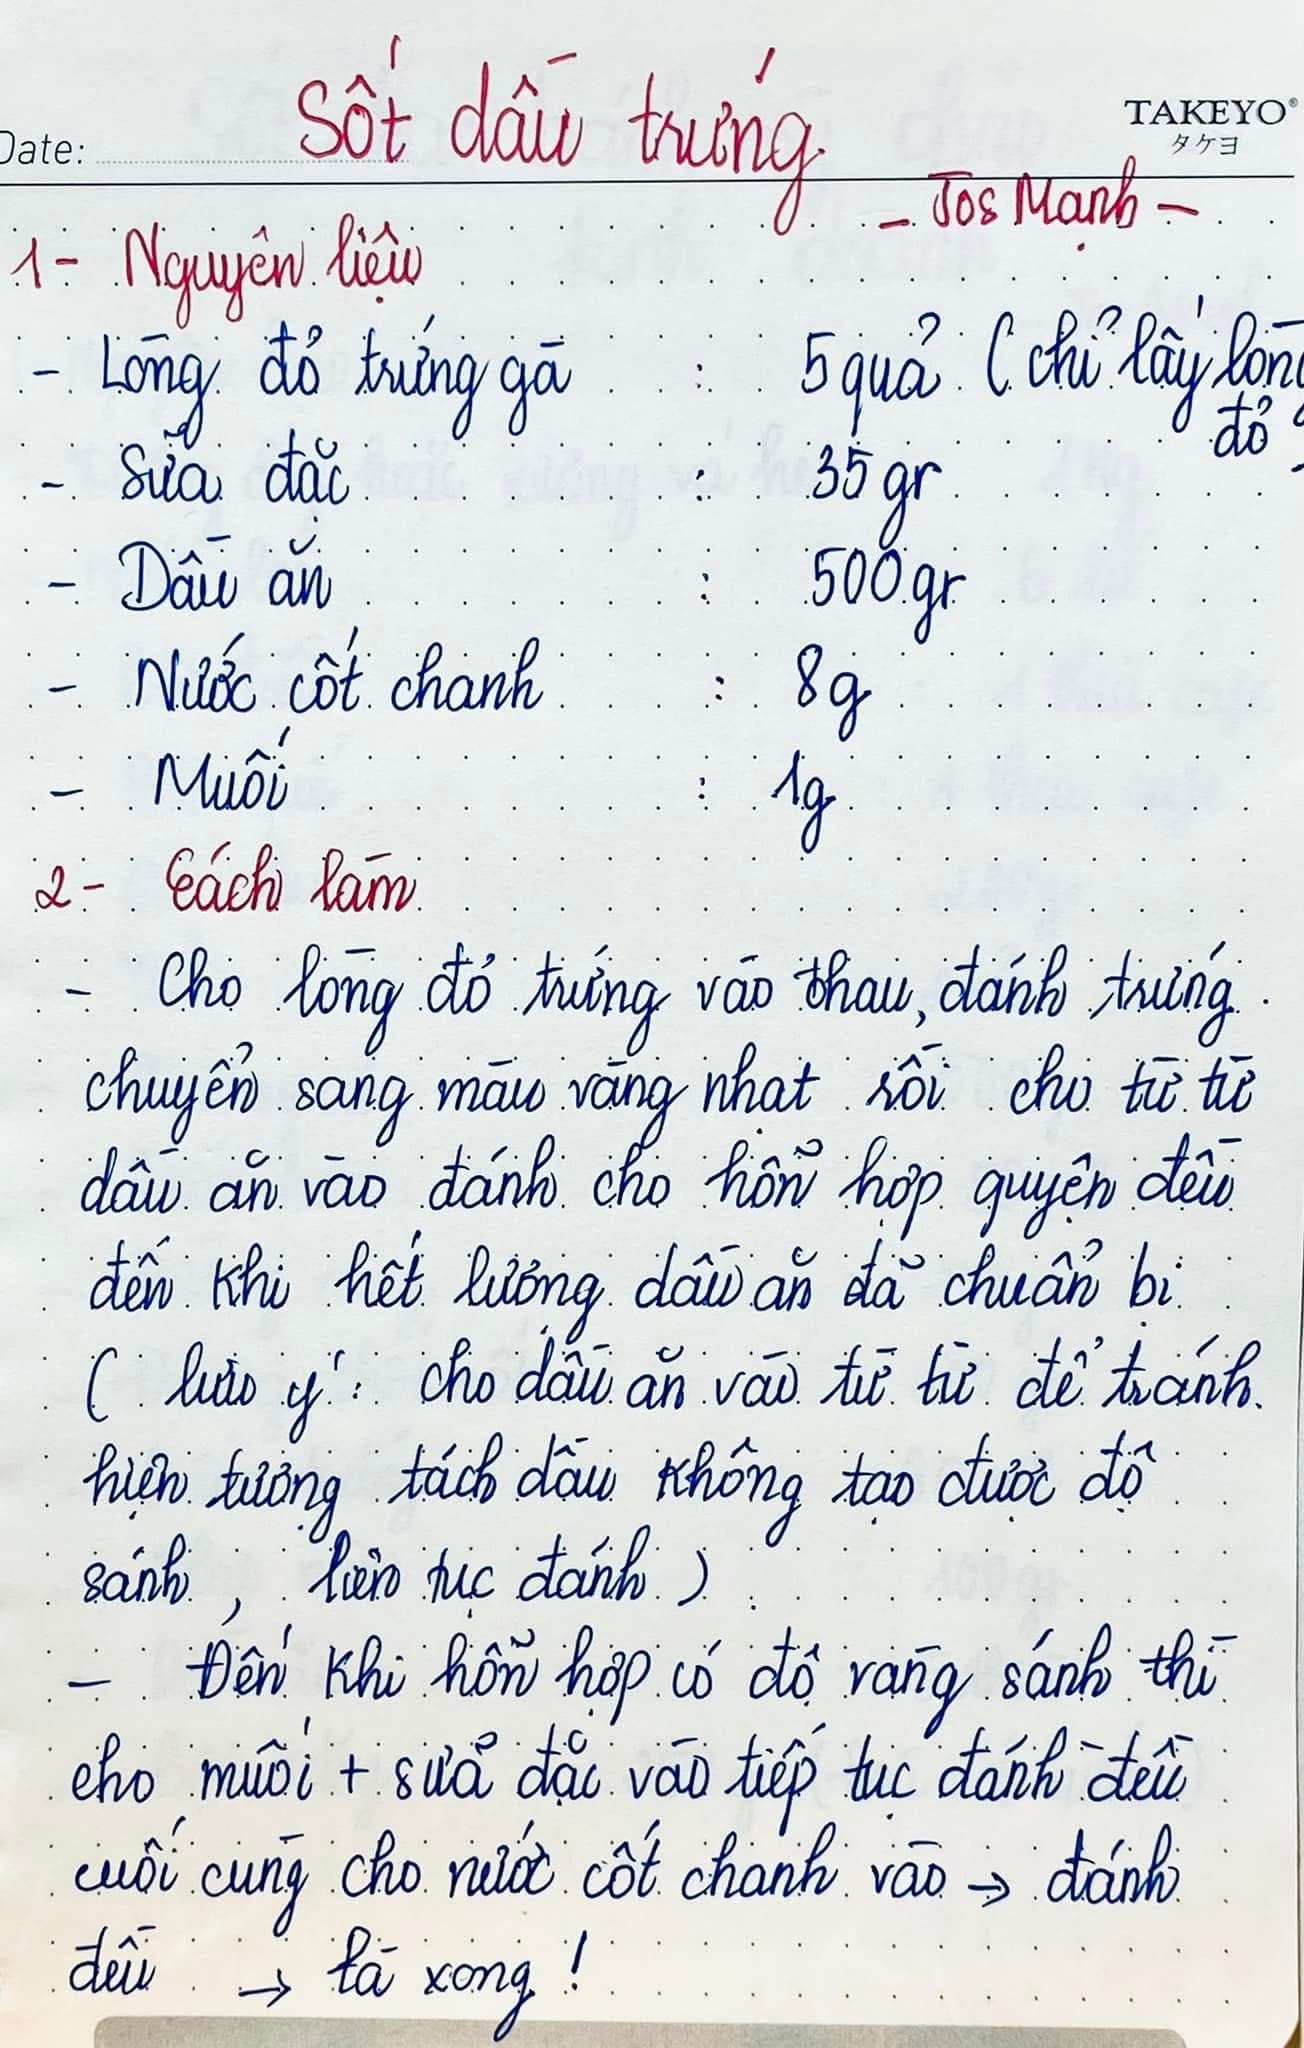 Sốt dầu trứng
TAKEYO®
Date:
タケヨ
- Jos Mạnh -
1- Nguyên liệu
- Lòng đỏ trứng gà : 5 quả (chỉ lấy lòng
đỏ)
- Sữa đặc : 35 gr
- Dầu ăn : 500 gr
- Nước cốt chanh : 8g
- Muối : 1g
2- Cách làm
- Cho lòng đỏ trứng vào thau, đánh trứng
chuyển sang màu vàng nhạt rồi cho từ từ
dầu ăn vào đánh cho hỗn hợp quyện đều
đến khi hết lượng dầu ăn đã chuẩn bị
( lưu ý : cho dầu ăn vào từ từ để tránh
hiện tượng tách dầu không tạo được độ
sánh , liên tục đánh )
- Đến khi hỗn hợp có độ ràng sánh thì
cho muối + sữa đặc vào tiếp tục đánh đều
cuối cùng cho nước cốt chanh vào → đánh
đều → là xong !